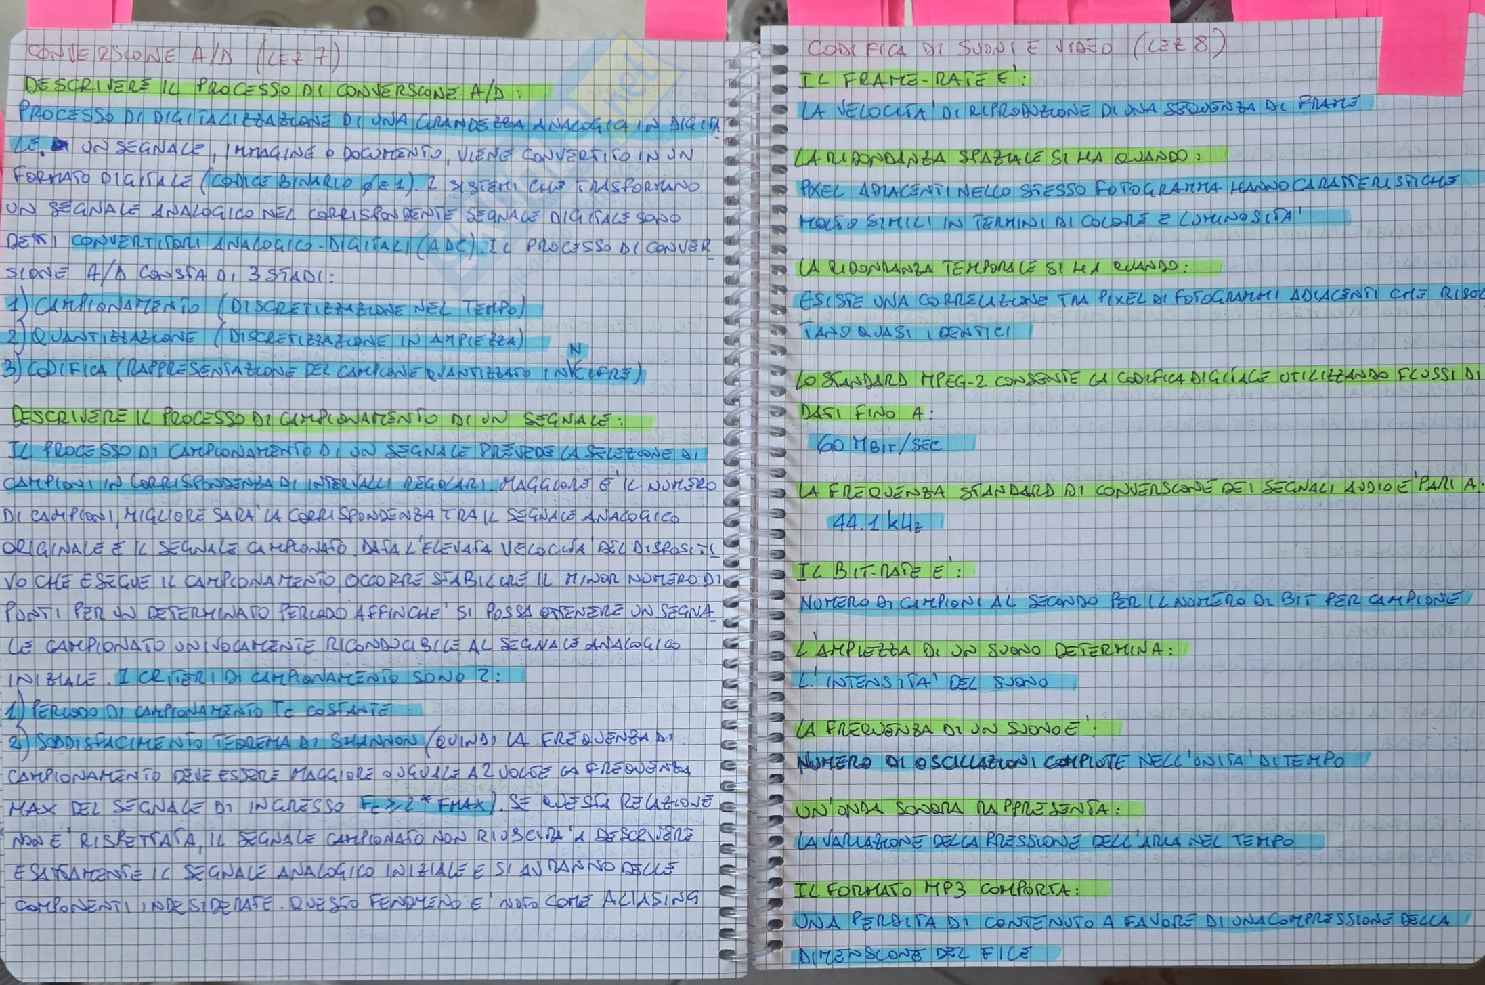 CONVERSIONE A/D (LEZ 7)
DESCRIVERE IL PROCESSO DI CONVERSIONE A/D:
PROCESSO DI DIGITALIZZAZIONE DI UNA GRANDEZZA ANALOGICA IN DIGITA
LE. UN SEGNALE, IMMAGINE O DOCUMENTO, VIENE CONVERTITO IN UN
FORMATO DIGITALE (CODICE BINARIO 0 E 1). I SISTEMI CHE TRASFORMANO
UN SEGNALE ANALOGICO NEL CORRISPONDENTE SEGNALE DIGITALE SONO
DETTI CONVERTITORI ANALOGICO-DIGITALI (ADC). IL PROCESSO DI CONVER
SIONE A/D CONSTA DI 3 STADI:
1) CAMPIONAMENTO (DISCRETIZZAZIONE NEL TEMPO)
2) QUANTIZZAZIONE (DISCRETIZZAZIONE IN AMPIEZZA)
3) CODIFICA (RAPPRESENTAZIONE DEL CAMPIONE QUANTIZZATO IN N CIFRE)
DESCRIVERE IL PROCESSO DI CAMPIONAMENTO DI UN SEGNALE:
IL PROCESSO DI CAMPIONAMENTO DI UN SEGNALE PREVEDE LA SELEZIONE DI
CAMPIONI IN CORRISPONDENZA DI INTERVALLI REGOLARI. MAGGIORE E' IL NUMERO
DI CAMPIONI, MIGLIORE SARA' LA CORRISPONDENZA TRA IL SEGNALE ANALOGICO
ORIGINALE E IL SEGNALE CAMPIONATO. DATA L'ELEVATA VELOCITA' DEL DISPOSITI
VO CHE ESEGUE IL CAMPIONAMENTO, OCCORRE STABILIRE IL MINOR NUMERO DI
PUNTI PER UN DETERMINATO PERIODO AFFINCHE' SI POSSA OTTENERE UN SEGNA
LE CAMPIONATO UNIVOCAMENTE RICONDUCIBILE AL SEGNALE ANALOGICO
INIZIALE. I CRITERI DI CAMPIONAMENTO SONO 2:
1) PERIODO DI CAMPIONAMENTO TC COSTANTE
2) SODDISFACIMENTO TEOREMA DI SHANNON (QUINDI LA FREQUENZA DI
CAMPIONAMENTO DEVE ESSERE MAGGIORE O UGUALE A 2 VOLTE LA FREQUENZA
MAX DEL SEGNALE DI INGRESSO FC ≥ 2 * FMAX). SE QUESTA RELAZIONE
NON E' RISPETTATA, IL SEGNALE CAMPIONATO NON RIUSCIRA' A DESCRIVERE
ESATTAMENTE IL SEGNALE ANALOGICO INIZIALE E SI AVRANNO DELLE
COMPONENTI INDESIDERATE. QUESTO FENOMENO E' NOTO COME ALIASING
CODIFICA DI SUONI E VIDEO (LEZ 8)
IL FRAME-RATE E':
LA VELOCITA' DI RIPRODUZIONE DI UNA SEQUENZA DI FRAME
LA RIDONDANZA SPAZIALE SI HA QUANDO:
PIXEL ADIACENTI NELLO STESSO FOTOGRAMMA HANNO CARATTERISTICHE
MOLTO SIMILI IN TERMINI DI COLORE E LUMINOSITA'
LA RIDONDANZA TEMPORALE SI HA QUANDO:
ESISTE UNA CORRELAZIONE TRA PIXEL DI FOTOGRAMMI ADIACENTI CHE RISUL
TANO QUASI IDENTICI
LO STANDARD MPEG-2 CONSENTE LA CODIFICA DIGITALE UTILIZZANDO FLUSSI DI
DATI FINO A:
60 MBIT/SEC
LA FREQUENZA STANDARD DI CONVERSIONE DEI SEGNALI AUDIO E' PARI A:
44.1 kHz
IL BIT-RATE E':
NUMERO DI CAMPIONI AL SECONDO PER IL NUMERO DI BIT PER CAMPIONE
L'AMPIEZZA DI UN SUONO DETERMINA:
L'INTENSITA' DEL SUONO
LA FREQUENZA DI UN SUONO E':
NUMERO DI OSCILLAZIONI COMPLETE NELL'UNITA' DI TEMPO
UN'ONDA SONORA RAPPRESENTA:
LA VARIAZIONE DELLA PRESSIONE DELL'ARIA NEL TEMPO
IL FORMATO MP3 COMPORTA:
UNA PERDITA DI CONTENUTO A FAVORE DI UNA COMPRESSIONE DELLA
DIMENSIONE DEL FILE